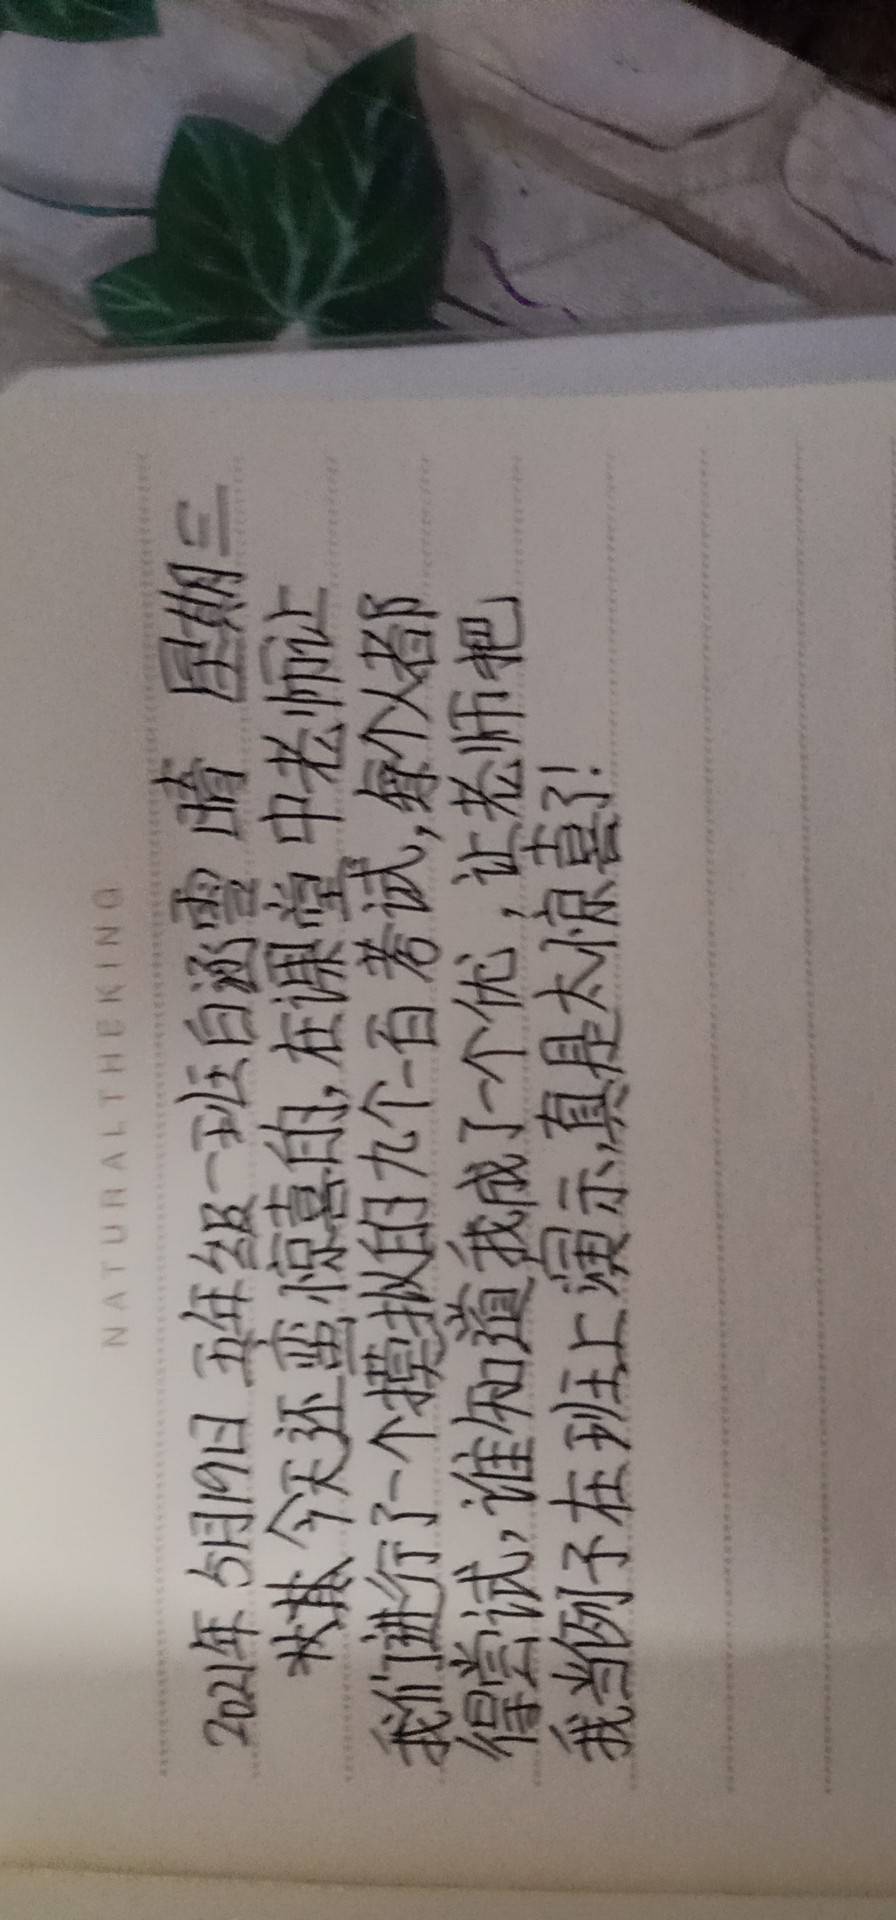 NATURALTHEKING
2021年5月19日 五年级一班白涵雪 晴 星期三
我今天还蛮惊喜的,在课堂中老师让
我们进行了一个摸拟的九个一百考试,每个人都
得尝试,谁知道我成了一个优,让老师把
我当例子在班上演示,真是太惊喜了!